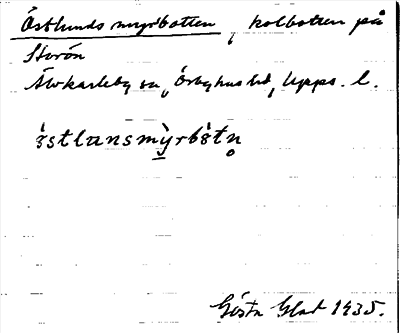 Östlunds myrbotten, kolbotten på
Storön
Älvkarleby sn, Örbyhus hd, Upps. l.
östlansmỳrbòtn̥
Gösta Glad 1935.